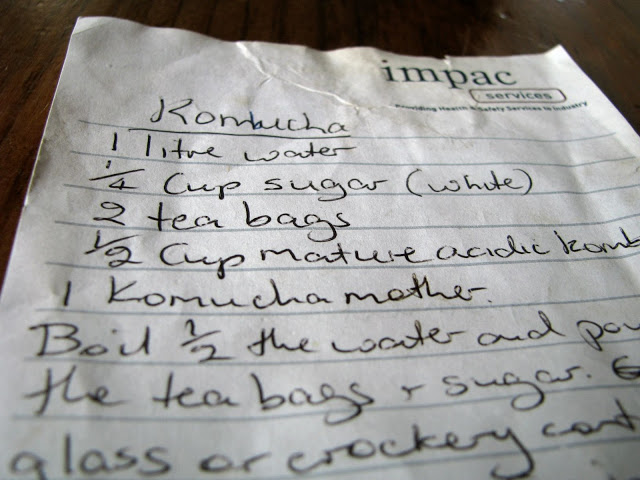 impac
services
Providing Health & Safety Services to Industry
Kombucha
1 litre water
1/4 Cup sugar (white)
2 tea bags
1/2 Cup mature acidic komb
1 Komucha mother.
Boil 1/2 the water and po
the tea bags + sugar.
glass or crockery cont